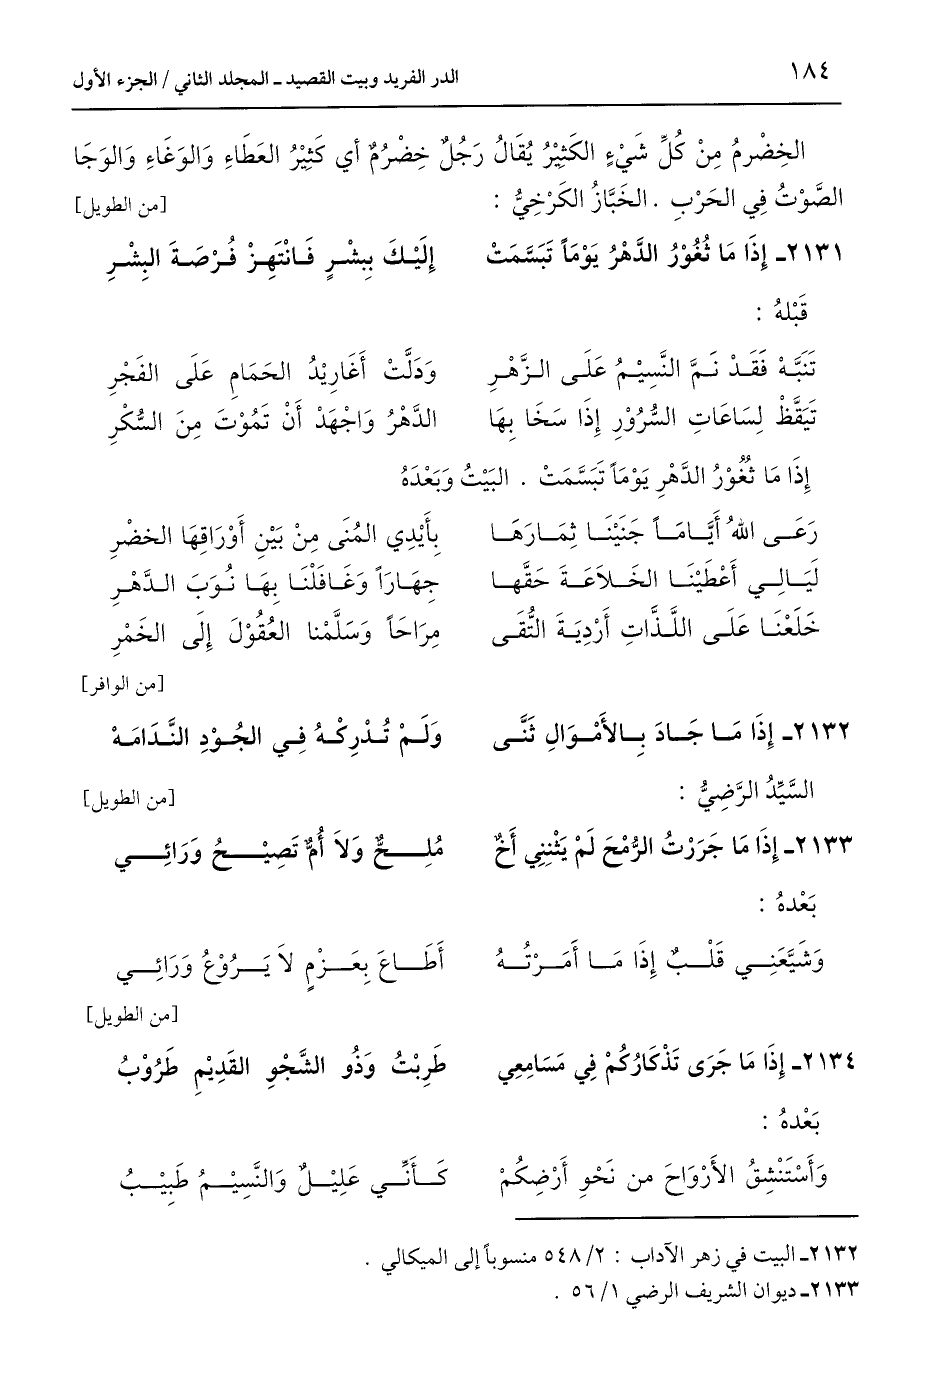 ١٨٤ الدر الفريد وبيت القصيد ـ المجلد الثاني / الجزء الأول
الخِضْرمُ مِنْ كُلِّ شَيْءٍ الكَثِيْرُ يُقَالُ رَجُلٌ خِضْرُمٌ أي كَثِيْرُ العَطَاءِ وَالوَغَاءِ وَالوَجَا
الصَّوْتُ فِي الحَرْبِ . الخَبَّازُ الكَرْخِيُّ : [من الطويل]
٢١٣١ـ إِذَا مَا ثُغُوْرُ الدَّهْرُ يَوْمَاً تَبَسَّمَتْ إِلَيْكَ بِبِشْرٍ فَانْتَهِزْ فُرْصَةَ البِشْرِ
قَبْلهُ :
تَنَبَّهْ فَقَدْ نَمَّ النَّسِيْمُ عَلَى الزَّهْرِ وَدَلَّتْ أَغَارِيْدُ الحَمَامِ عَلَى الفَجْرِ
تَيَقَّظْ لِسَاعَاتِ السُّرُوْرِ إِذَا سَخَا بِهَا الدَّهْرُ وَاجْهَدْ أَنْ تَمُوْتَ مِنَ السُّكْرِ
إِذَا مَا ثُغُوْرُ الدَّهْرِ يَوْمَاً تَبَسَّمَتْ . البَيْتُ وَبَعْدَهُ
رَعَى اللهُ أَيَّامَاً جَنَيْنَا ثِمَارَهَا بِأَيْدِي المُنَى مِنْ بَيْنِ أَوْرَاقِهَا الخضْرِ
لَيَالِي أَعْطَيْنَا الخَلاَعَةَ حَقَّهَا جِهَارَاً وَغَافَلْنَا بِهَا نُوَبَ الدَّهْرِ
خَلَعْنَا عَلَى اللَّذَّاتِ أَرْدِيَةَ التُّقَى مِرَاحَاً وَسَلَّمْنا العُقُوْلَ إِلَى الخَمْرِ
[من الوافر]
٢١٣٢ـ إِذَا مَا جَادَ بِالأَمْوَالِ ثَنَّى وَلَمْ تُدْرِكْهُ فِي الجُوْدِ النَّدَامَهْ
السَّيِّدُ الرَّضِيُّ : [من الطويل]
٢١٣٣ـ إِذَا مَا جَرَرْتُ الرُّمْحَ لَمْ يَثْنِنِي أَخٌ مُلِحٌّ وَلاَ أُمٌّ تَصِيْحُ وَرَائِي
بَعْدهُ :
وَشَيَّعَنِي قَلْبٌ إِذَا مَا أَمَرْتُهُ أَطَاعَ بِعَزْمٍ لاَ يَرُوْغُ وَرَائِي
[من الطويل]
٢١٣٤ـ إِذَا مَا جَرَى تَذْكَارُكُمْ فِي مَسَامِعِي طَرِبْتُ وَذُو الشَّجْوِ القَدِيْمِ طَرُوْبُ
بَعْدهُ :
وَأَسْتَنْشِقُ الأَرْوَاحَ من نَحْوِ أَرْضِكُمْ كَأَنِّي عَلِيْلٌ وَالنَّسِيْمُ طَبِيْبُ
٢١٣٢ـ البيت في زهر الآداب : ٥٤٨/٢ منسوباً إلى الميكالي .
٢١٣٣ـ ديوان الشريف الرضي ٥٦/١ .